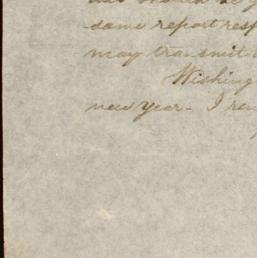 same report resp
may transmit
Wishing
new year - I rem